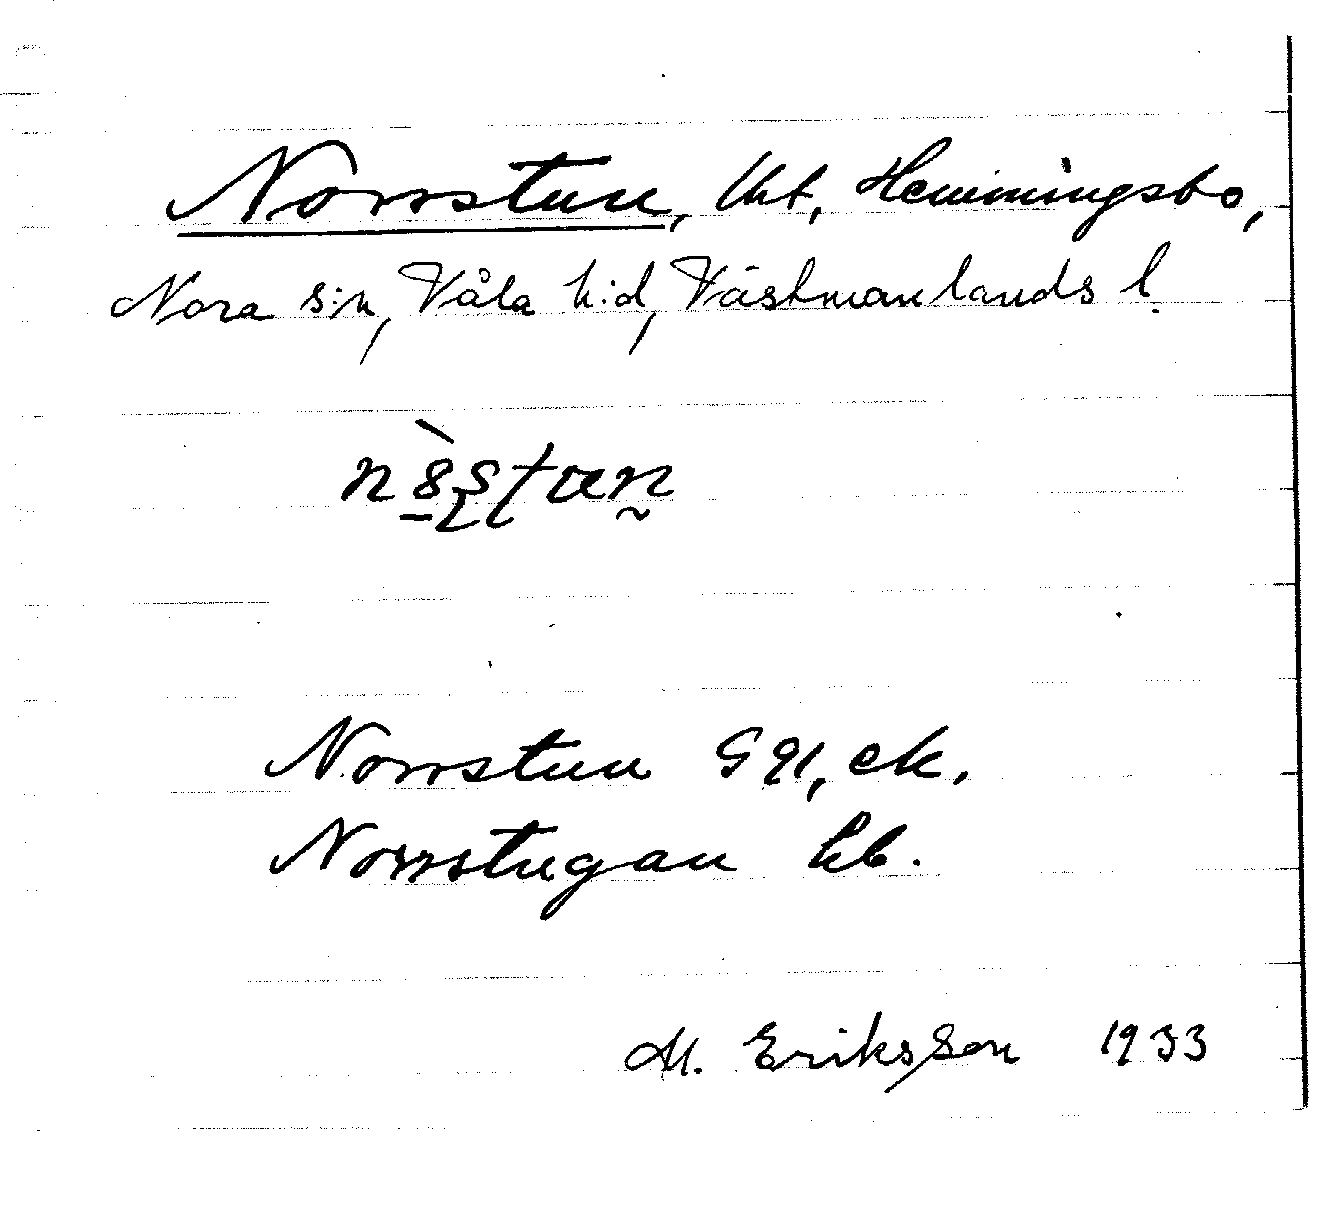 Norrstun, Unt, Hemmingsbo,
Nora s:n, Våla h:d, Västmanlands l.
Norrstun GQ, ek.
Norrstugan hb.
M. Eriksson 1933